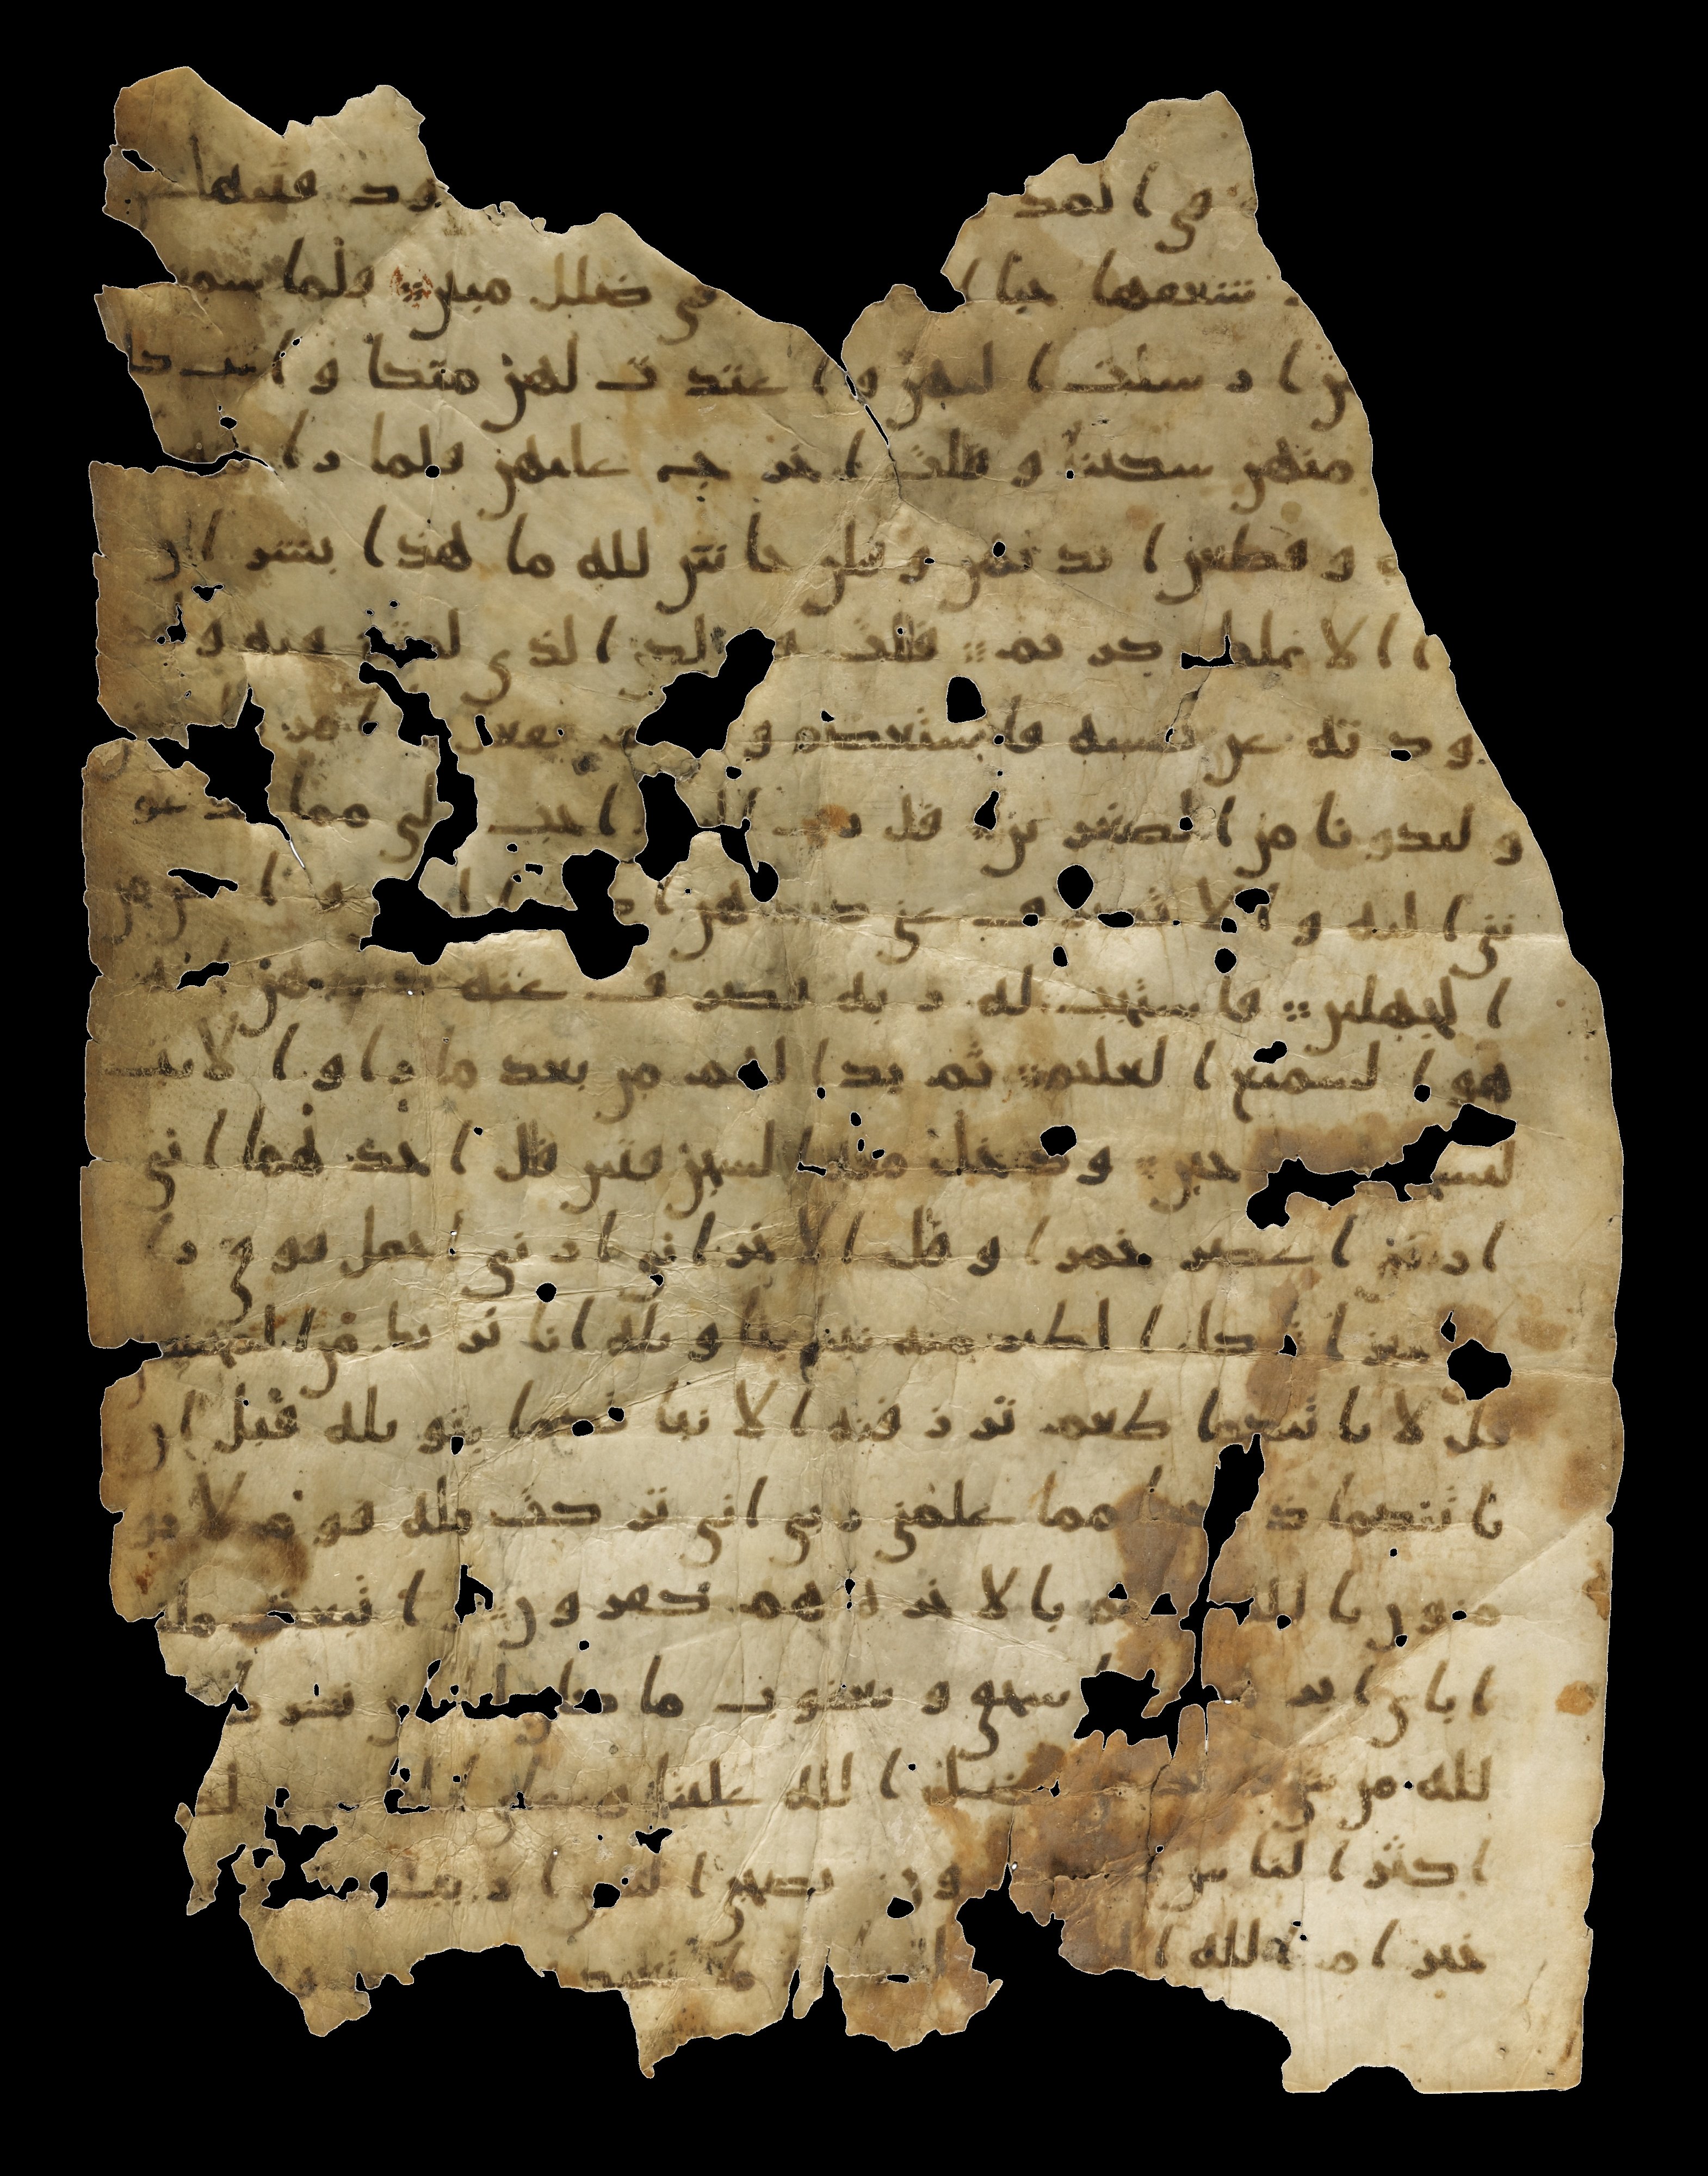 في المد ود فتيها
شغفها حبا ا في ضلل مبين فلما سمعـ
هن ارسلت اليهن واعتدت لهن متكا واتت كل
منهن سكينا وقلت اخرج عليهن فلما راينه
ه وقطعن ايديهن وقلن حاش لله ما هذا بشرا ان
ا الا ملك كريم قلت الذي لمتنني فيه ولقد
رودته عن نفسه فاستعصم و يفعل ما امر
وليكونا من الصغرين قل رب احب الي مما يدعو
نني اليه والا تصرف عني كيدهن ا واكن من
الجهلين فاستجب له ربه فصرف عنه كيدهن انه
هو السميع العليم ثم بدا لهم من بعد ما راوا الايت
ليسجـ حين ودخل معه السجن فتين قل احدهما اني
ارىني اعصر خمرا وقل الاخر اني ارىني احمل فوق را
سي خبزا تاكل الطير منه نبينا بتويله انا نريك من المحسنين
قل لا ياتيكما طعم ترزقنه الا نباتكما بتويله قبل ان
ياتيكما ذلكما مما علمني ربي اني تركت مله قوم لا يو
منون بالله وهم بالاخره هم كفرون واتبعت مله
اباي ابر اسحق ويعقوب ما كان لنا ان نشرك با
لله من شي فضل الله علينا وعلى الناس ولكن
اكثر الناس لا يشكرون يصحبي السجن ارباب
خير ام الله ا ما تعبدو